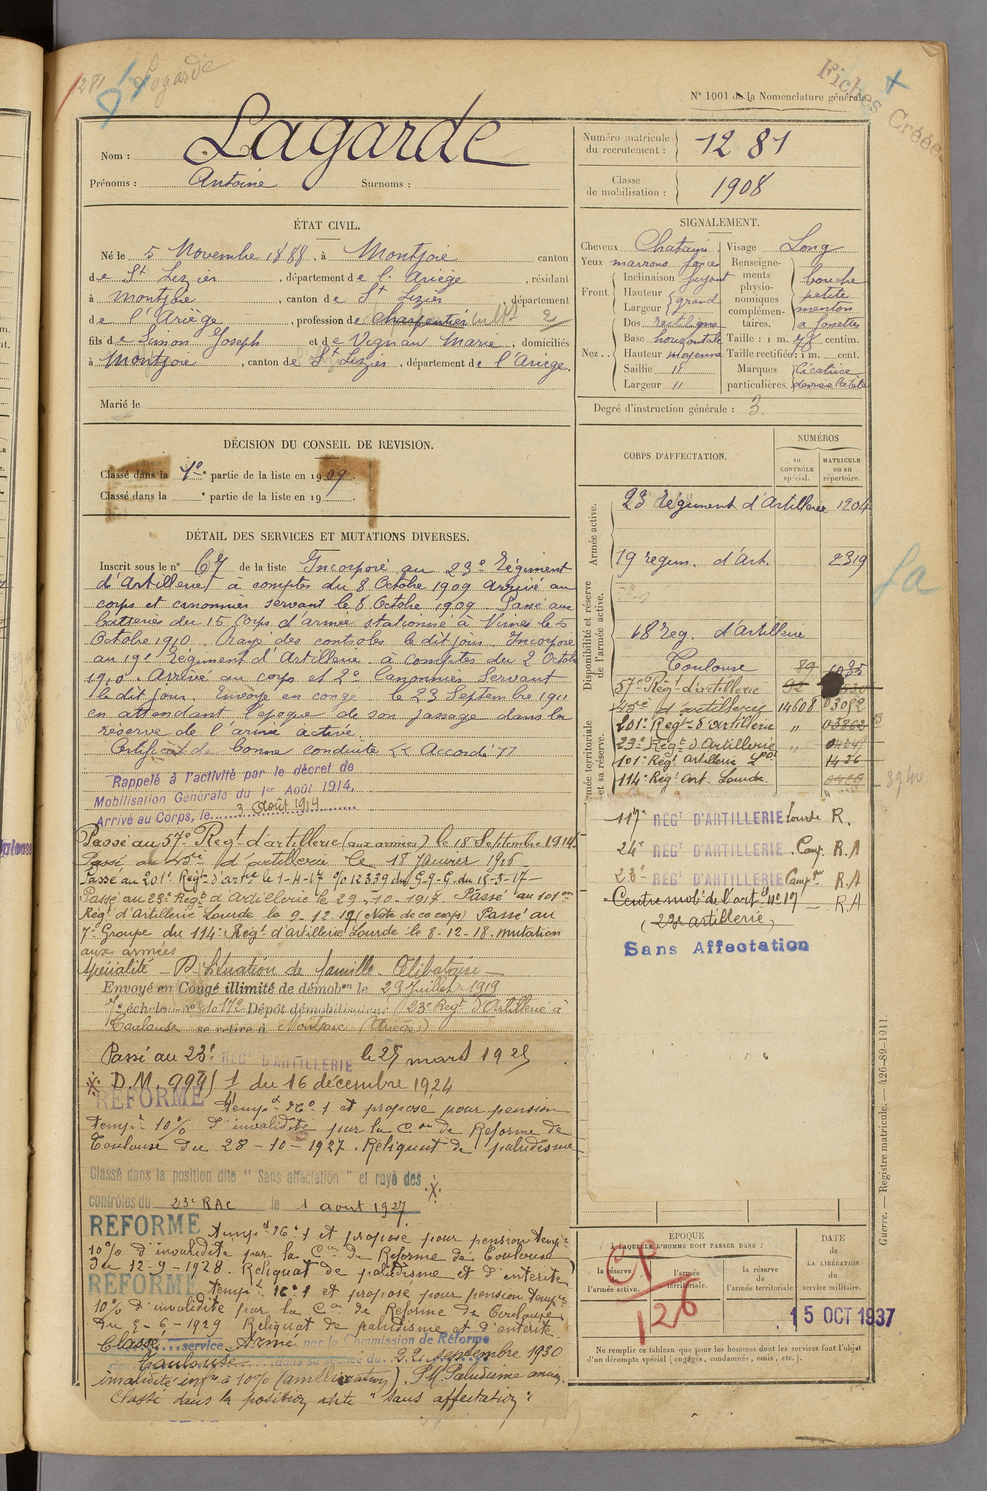 1281 Lagarde
Fiches Créées
N° 1001 de la Nomenclature générale
Nom : Lagarde
Prénoms : Antoine Surnoms :
Numéro matricule du recrutement : 1281
Classe de mobilisation : 1908
ÉTAT CIVIL.
Né le 5 Novembre 1888, à Montjoie canton
de St Lizier, département de l'Ariège, résidant
à Montjoie, canton de St Lizier, département
de l'Ariège, profession de Charpentier cult 2
fils de Joseph et de Vignau Marie, domiciliés
à Montjoie, canton de St Lizier, département de l'Ariège.
Marié le
SIGNALEMENT.
Cheveux Chatains
Yeux marrons foncé
Front. Inclinaison fuyant
Hauteur Largeur grand
Nez. Dos rectiligne
Base horizontale
Hauteur moyenne
Saillie "
Largeur "
Visage Long
Renseignements physionomiques complémentaires. bouche petite menton a fossettes
Taille : 1 m. 78 centim.
Taille rectifiée : 1 m. cent.
Marques particulières. Cicatrice
Degré d'instruction générale : 3.
DÉCISION DU CONSEIL DE REVISION.
Classé dans la 1e partie de la liste en 1909.
Classé dans la e partie de la liste en 19
DÉTAIL DES SERVICES ET MUTATIONS DIVERSES.
Inscrit sous le n° 67 de la liste Incorporé au 23e Régiment
d'Artillerie à compter du 8 Octobre 1909 Arrivé au
corps et canonnier servant le 8 Octobre 1909. Passé aux
batteries du 15 Corps d'armée stationné à le 5
Octobre 1910. Rayé des controles le dit jour. Incorporé
au 19e Régiment d'Artillerie à compter du 2 Octobre
1910. Arrivé au corps et 2e Canonnier Servant
le dit jour. Envoyé en congé le 23 Septembre 1911
en attendant l'époque de son passage dans la
réserve de l'armée active.
Certificat de bonne conduite "Accordé"
Rappelé à l'activité par le décret de
Mobilisation Générale du 1er Août 1914,
Arrivé au Corps, le 3 Août 1914
Passé au 57e Régt d'artillerie (aux armées) le 18 Septembre 1914
Passé au 45e d'artillerie le 18 Janvier 1916
Passé au 201e Régt d'artie le 1-4-17 12339 du G-Q-G du 15-3-17
Passé au 23e Régt d'Artillerie le 29-10-1917. Passé au 101e
Régt d'Artillerie Lourde le 9-12-17 (Note de ce corps) Passé au
7e Groupe du 114e Régt d'artillerie Lourde le 8-12-18. mutation
aux armées
Spécialité Situation de famille. Célibataire
Envoyé en Congé illimité de démobon le 29 Juillet 1919
7e échelon n° 172 Dépôt démobilisateur (23e Régt d'Artillerie à
Toulouse se retire à Montjoie (Ariège)
Passé au 23e RÉGT D'ARTILLERIE le 25 mars 1925
D.M. 999 1 du 16 décembre 1924
RÉFORMÉ tempre n° 1 et proposé pour pension
tempre 10% d'invalidité par la Con de Réforme de
Toulouse du 28-10-1927. Reliquat de paludisme
Classé dans la position dite "Sans affectation" et rayé des
contrôles du 23e RAC le 1 aout 1927
RÉFORMÉ tempre n° 1 et proposé pour pension tempre
10% d'invalidité par la Con de Réforme de Toulouse
du 12-9-1928. Reliquat de paludisme et d'entérite
RÉFORMÉ tempre n° 1 et proposé pour pension tempre
10% d'invalidité par la Con de Réforme de Toulouse
du 5-6-1929 Reliquat de paludisme et d'entérite.
Classé service Armé par la Commission de Réforme
de Toulouse dans sa séance du 22 septembre 1930
invalidité infre à 10% (amélioration). Paludisme
Classé dans la position dite "sans affectation"
CORPS D'AFFECTATION.
NUMÉROS
au CONTRÔLE spécial.
MATRICULE ou au répertoire.
Armée active.
23 Régiment d'Artillerie 1204
19 régim. d'Art. 2319
Disponibilité et réserve de l'armée active.
18 Rég. d'Artillerie
Toulouse
57e Régt d'artillerie
Armée territoriale et sa réserve.
45e d'artillerie 14608
201e Régt d'Artillerie "
23e Régt d'Artillerie "
101e Régt artillerie Lde 1426
114e Régt Art. Lourde
3940
fa
117e RÉGT D'ARTILLERIE Lourde R.
24e RÉGT D'ARTILLERIE Camp. R.A
23e RÉGT D'ARTILLERIE Campne R.A
Centre mobre de l'artie n° 17 R.A
(23e artillerie)
Sans Affectation
ÉPOQUE
À LAQUELLE L'HOMME DOIT PASSER DANS :
la réserve de l'armée active.
l'armée territoriale.
la réserve de l'armée territoriale
DATE de LA LIBÉRATION du service militaire.
CP
126
15 OCT 1937
Ne remplir ce tableau que pour les hommes dont les services font l'objet
d'un décompte spécial (engagés, condamnés, omis, etc.).
Guerre. — Registre matricule. — 426-89-1911.